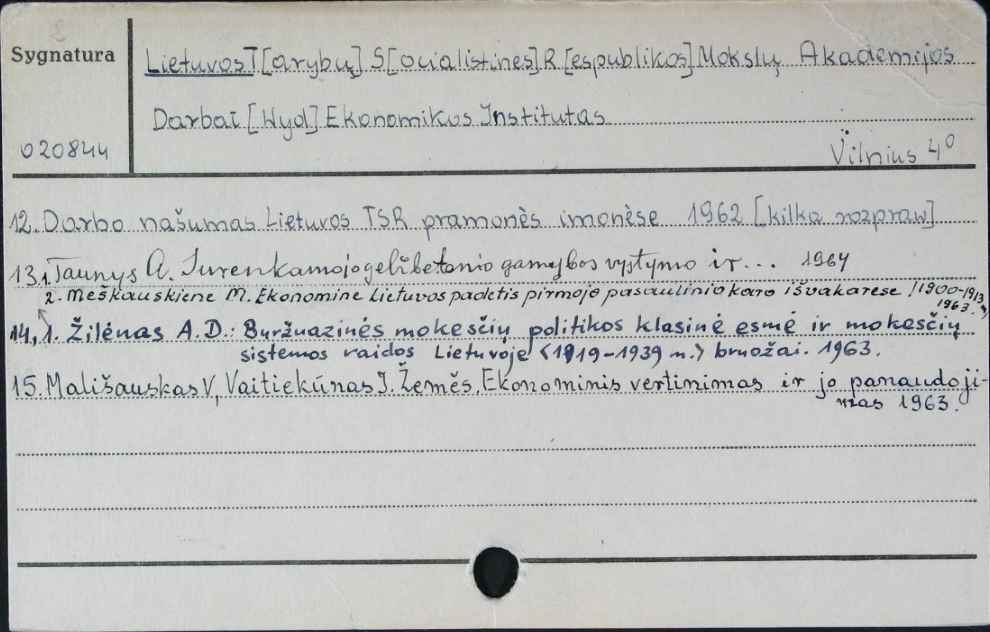 Sygnatura
Lietuvos T[arybų] S[ocialistinės] R[espublikos] Mokslų Akademijos
Darbai [Wyd] Ekonomikos Institutas
020844
Vilnius 4⁰
12. Darbo našumas Lietuvos TSR pramonės įmonėse 1962 [kilka rozpraw]
13.1. Taunys A. Surenkamojo gelžbetonio gamybos vystymo ir... 1964
2. Meškauskienė M. Ekonominė Lietuvos padėtis pirmojo pasaulinio karo išvakarėse /1900-1913
1963.
14, 1. Žilėnas A.D.: Buržuazinės mokesčių politikos klasinė esmė ir mokesčių
sistemos raidos Lietuvoje (1919-1939 m.) bruožai. 1963.
15. Mališauskas V, Vaitiekūnas J. Žemės. Ekonominis vertinimas ir jo panaudoji-
mas 1963.